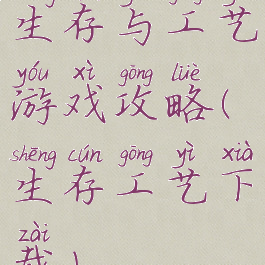 生存与工艺
yóu xì gōng lüè
游戏攻略(
shēng cún gōng yì xià
生存工艺下
zài
载)